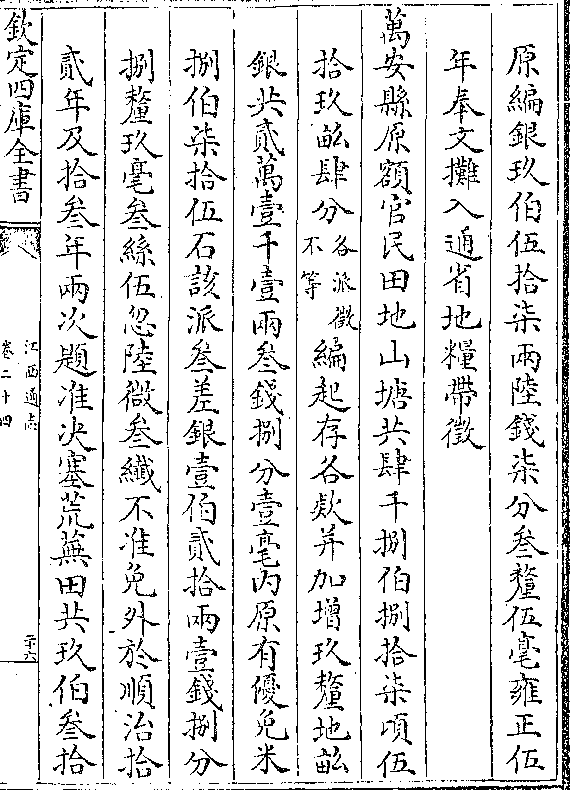 原編銀玖伯伍拾柒兩陸錢柒分叁釐伍毫雍正伍
年奉文攤入通省地糧帶徵
萬安縣原額官民田地山塘共肆千捌伯捌拾柒頃伍
拾玖畝肆分各派徵不等編起存各欵并加增玖釐地畝
銀共貳萬壹千壹兩叁錢捌分壹毫内原有優免米
捌伯柒拾伍石該派叁差銀壹伯貳拾兩壹錢捌分
捌釐玖毫叁絲伍忽陸微叁纖不准免外於順治拾
貳年及拾叁年兩次題准决塞荒蕪田共玖伯叁拾
欽定四庫全書
江西通志
卷二十四
二十六